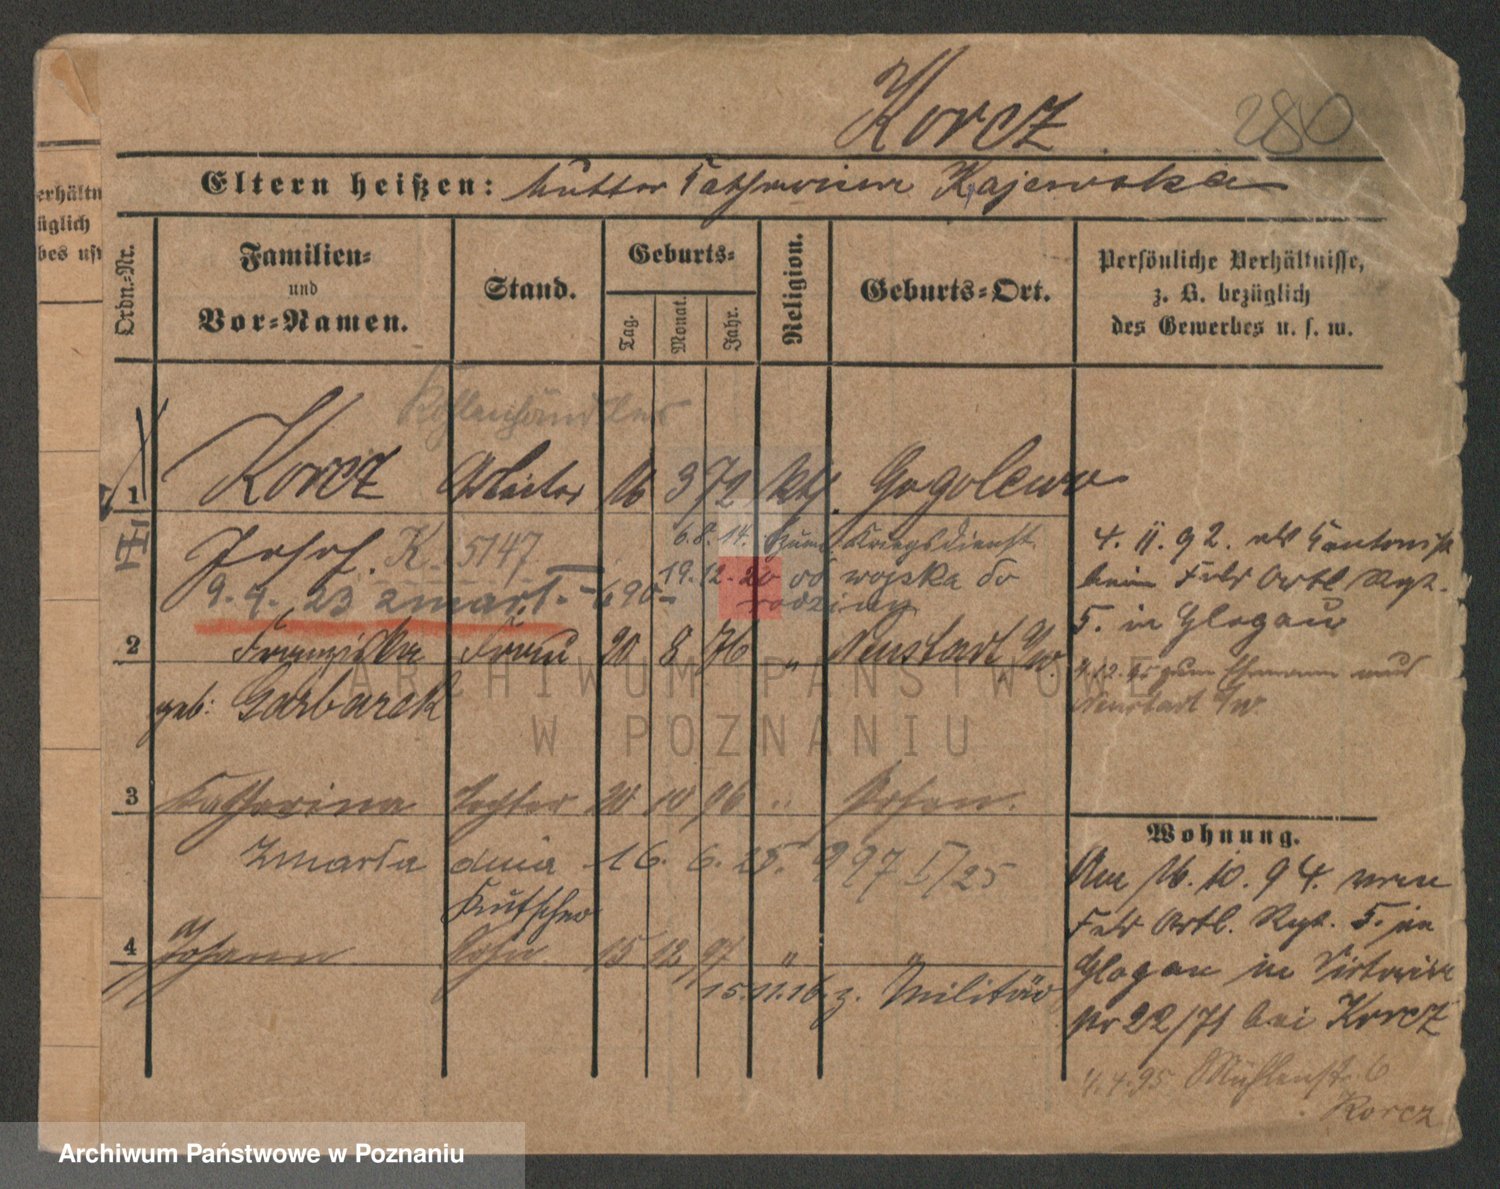 Korcz
280
Eltern heißen: Mutter Catharina Kajewska
erhältn
üglich
bes usw
Ordn.-Nr.
Familien-
und
Vor-Namen.
Stand.
Geburts-
Tag.
Monat.
Jahr.
Religion.
Geburts-Ort.
Persönliche Verhältnisse,
z. B. bezüglich
des Gewerbes u. s. w.
Kohlenhändler
1 Korcz Arbeiter 16 3 72 kth. Gogolewo
Josef. K. 5147
6.8.14. zum Kriegsdienst
19.12.20 od wojska do
rodziny
9. 9. 23 zmarł.
4. 11. 92. als
beim Feld Artl. Regt.
5. in Glogau
2 Franziska Frau 20 8 76 " Neustadt a/W.
geb: Garbarek
zum Ehemann aus
Neustadt a/W.
3 Katharina Tochter 20 10 96 " Posen.
Zmarła dnia 16. 6. 25. 997 I/25
Kutscher
4 Johann Sohn 15 12 97 " "
15.11.16. z. Militär
Wohnung.
Am 16. 10. 94. vom
Feld Artl. Regt. 5. in
Glogau in Victoria
Nr 22/71 bei Korcz
4.4.95 Mühlenstr. 6
Korcz
ARCHIWUM PAŃSTWOWE
W POZNANIU
Archiwum Państwowe w Poznaniu